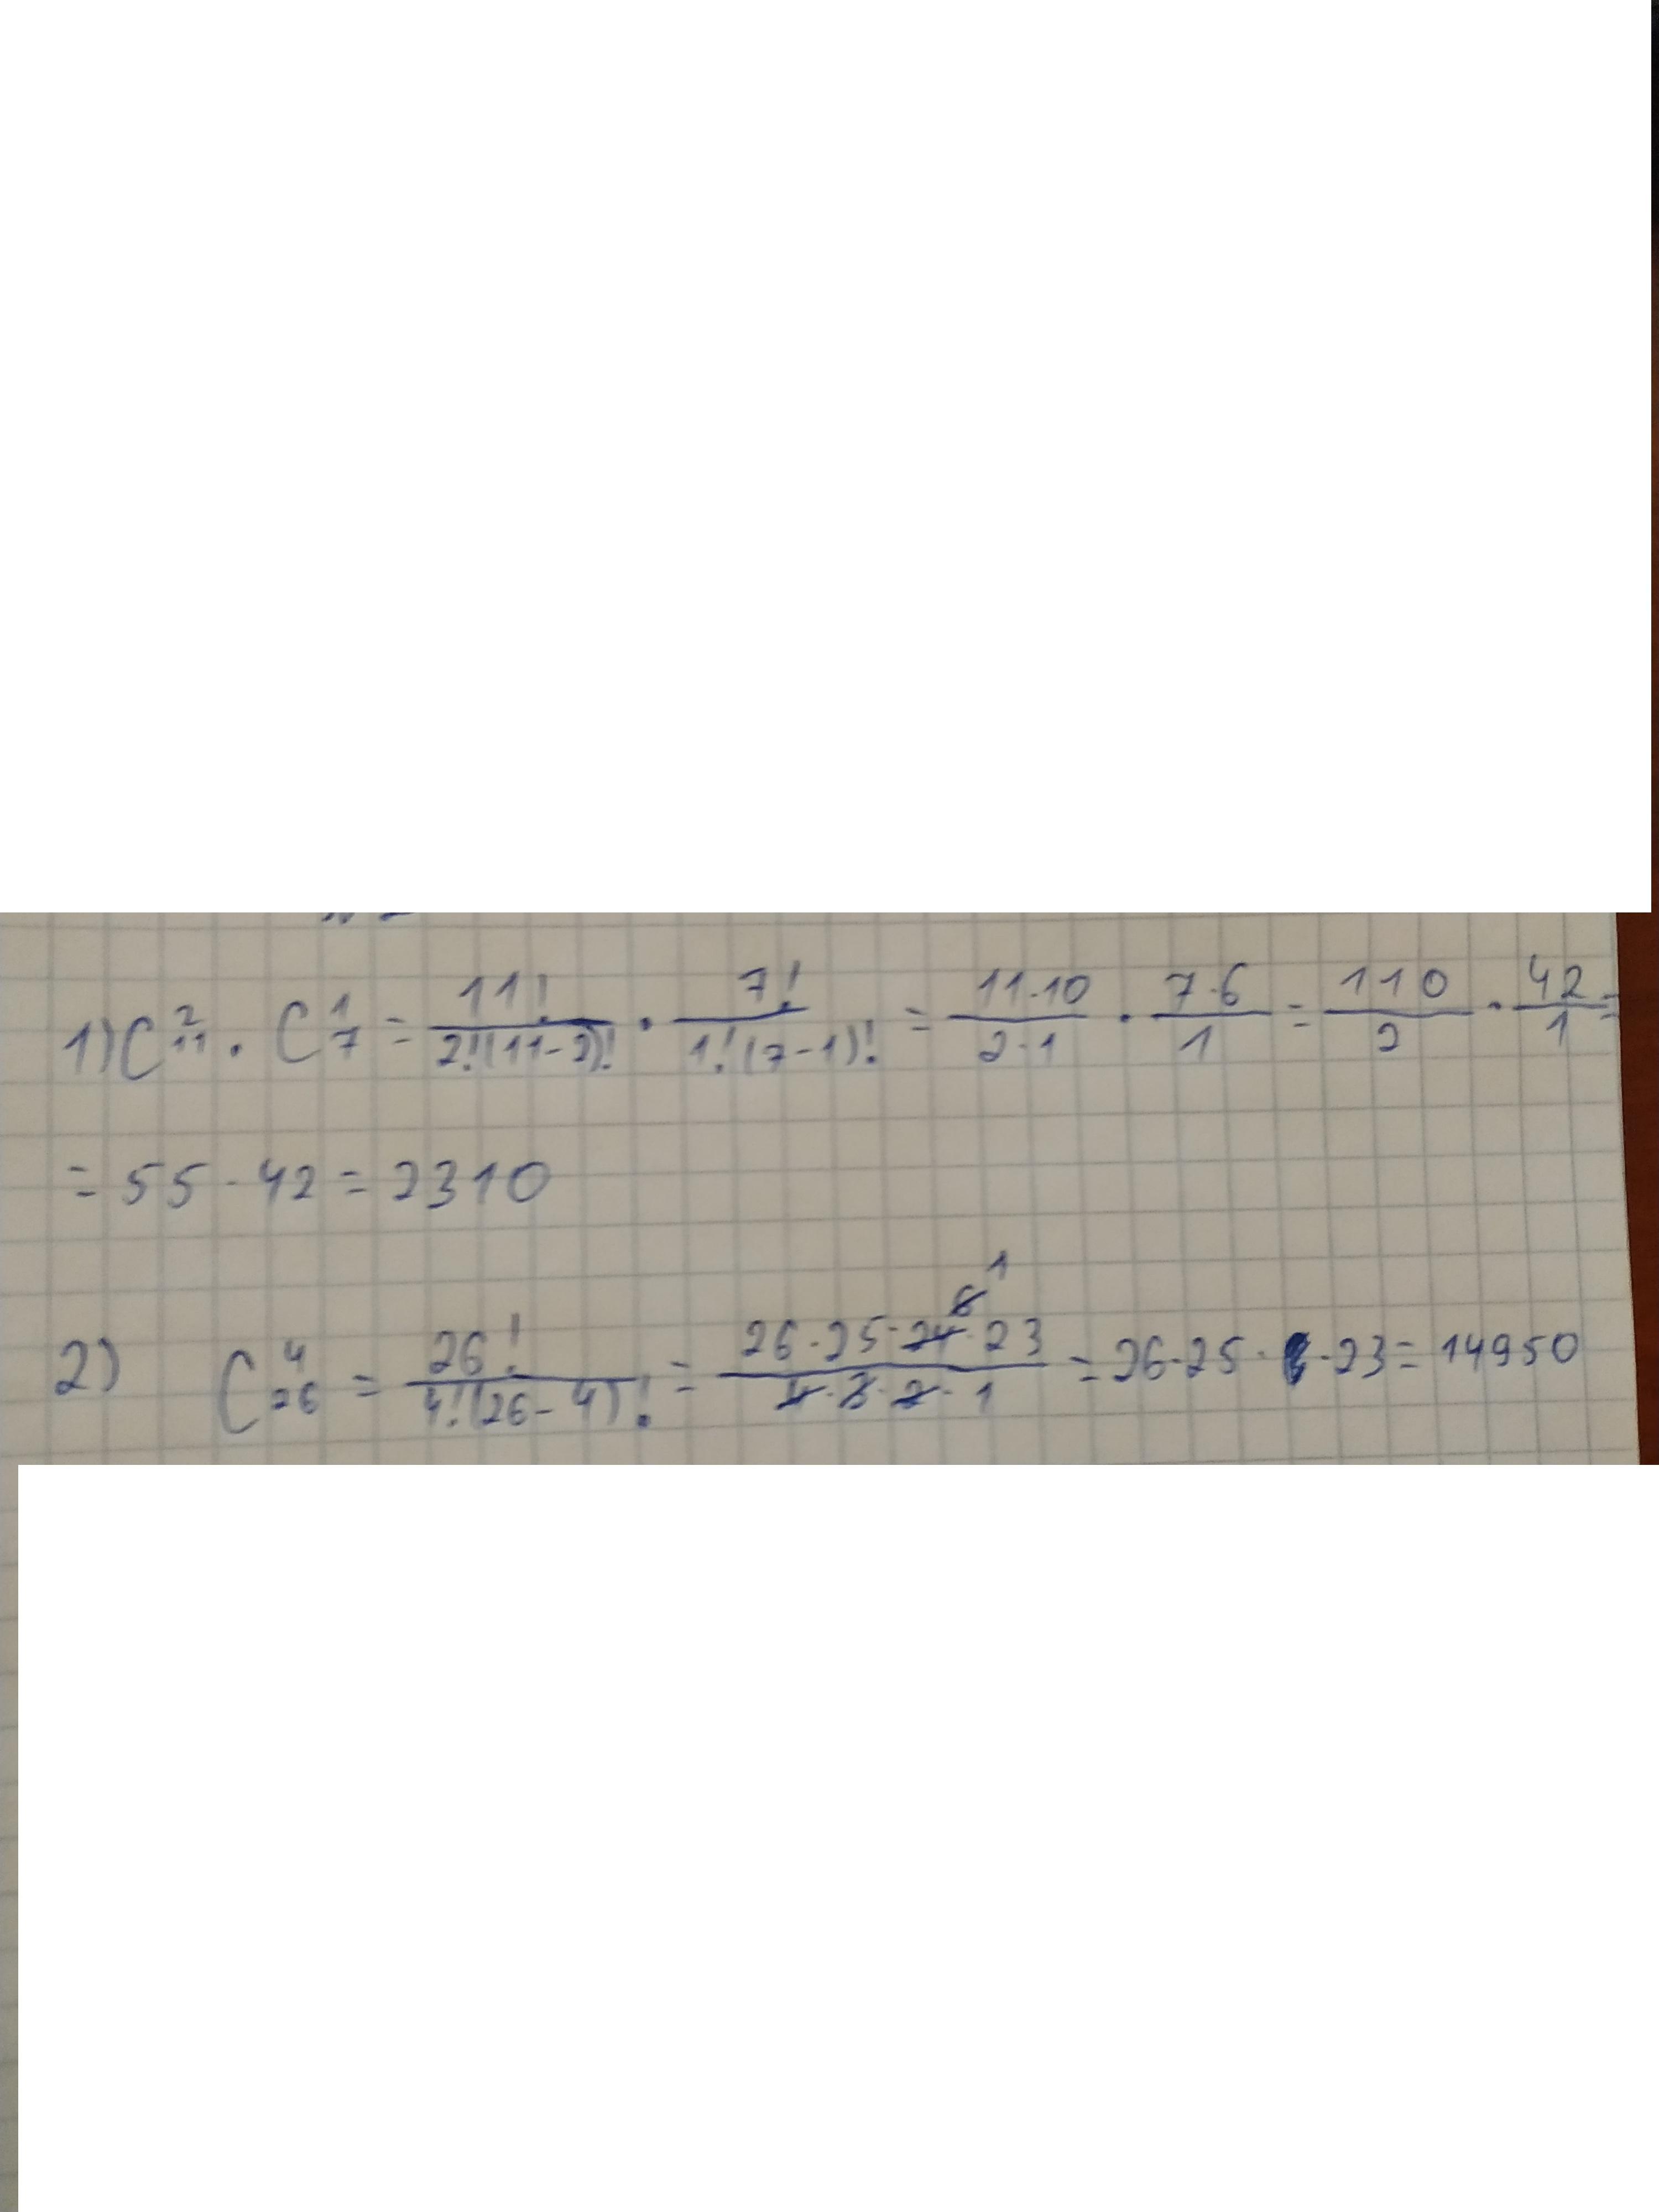 1) C²₁₁ · C¹₇ = 11!/2!(11-2)! · 7!/1!(7-1)! = 11·10/2·1 · 7·6/1 = 110/2 · 42/1 =
= 55 · 42 = 2310
2) C⁴₂₆ = 26!/4!(26-4)! = 26·25·24·23/4·3·2·1 = 26·25· ·23 = 14950